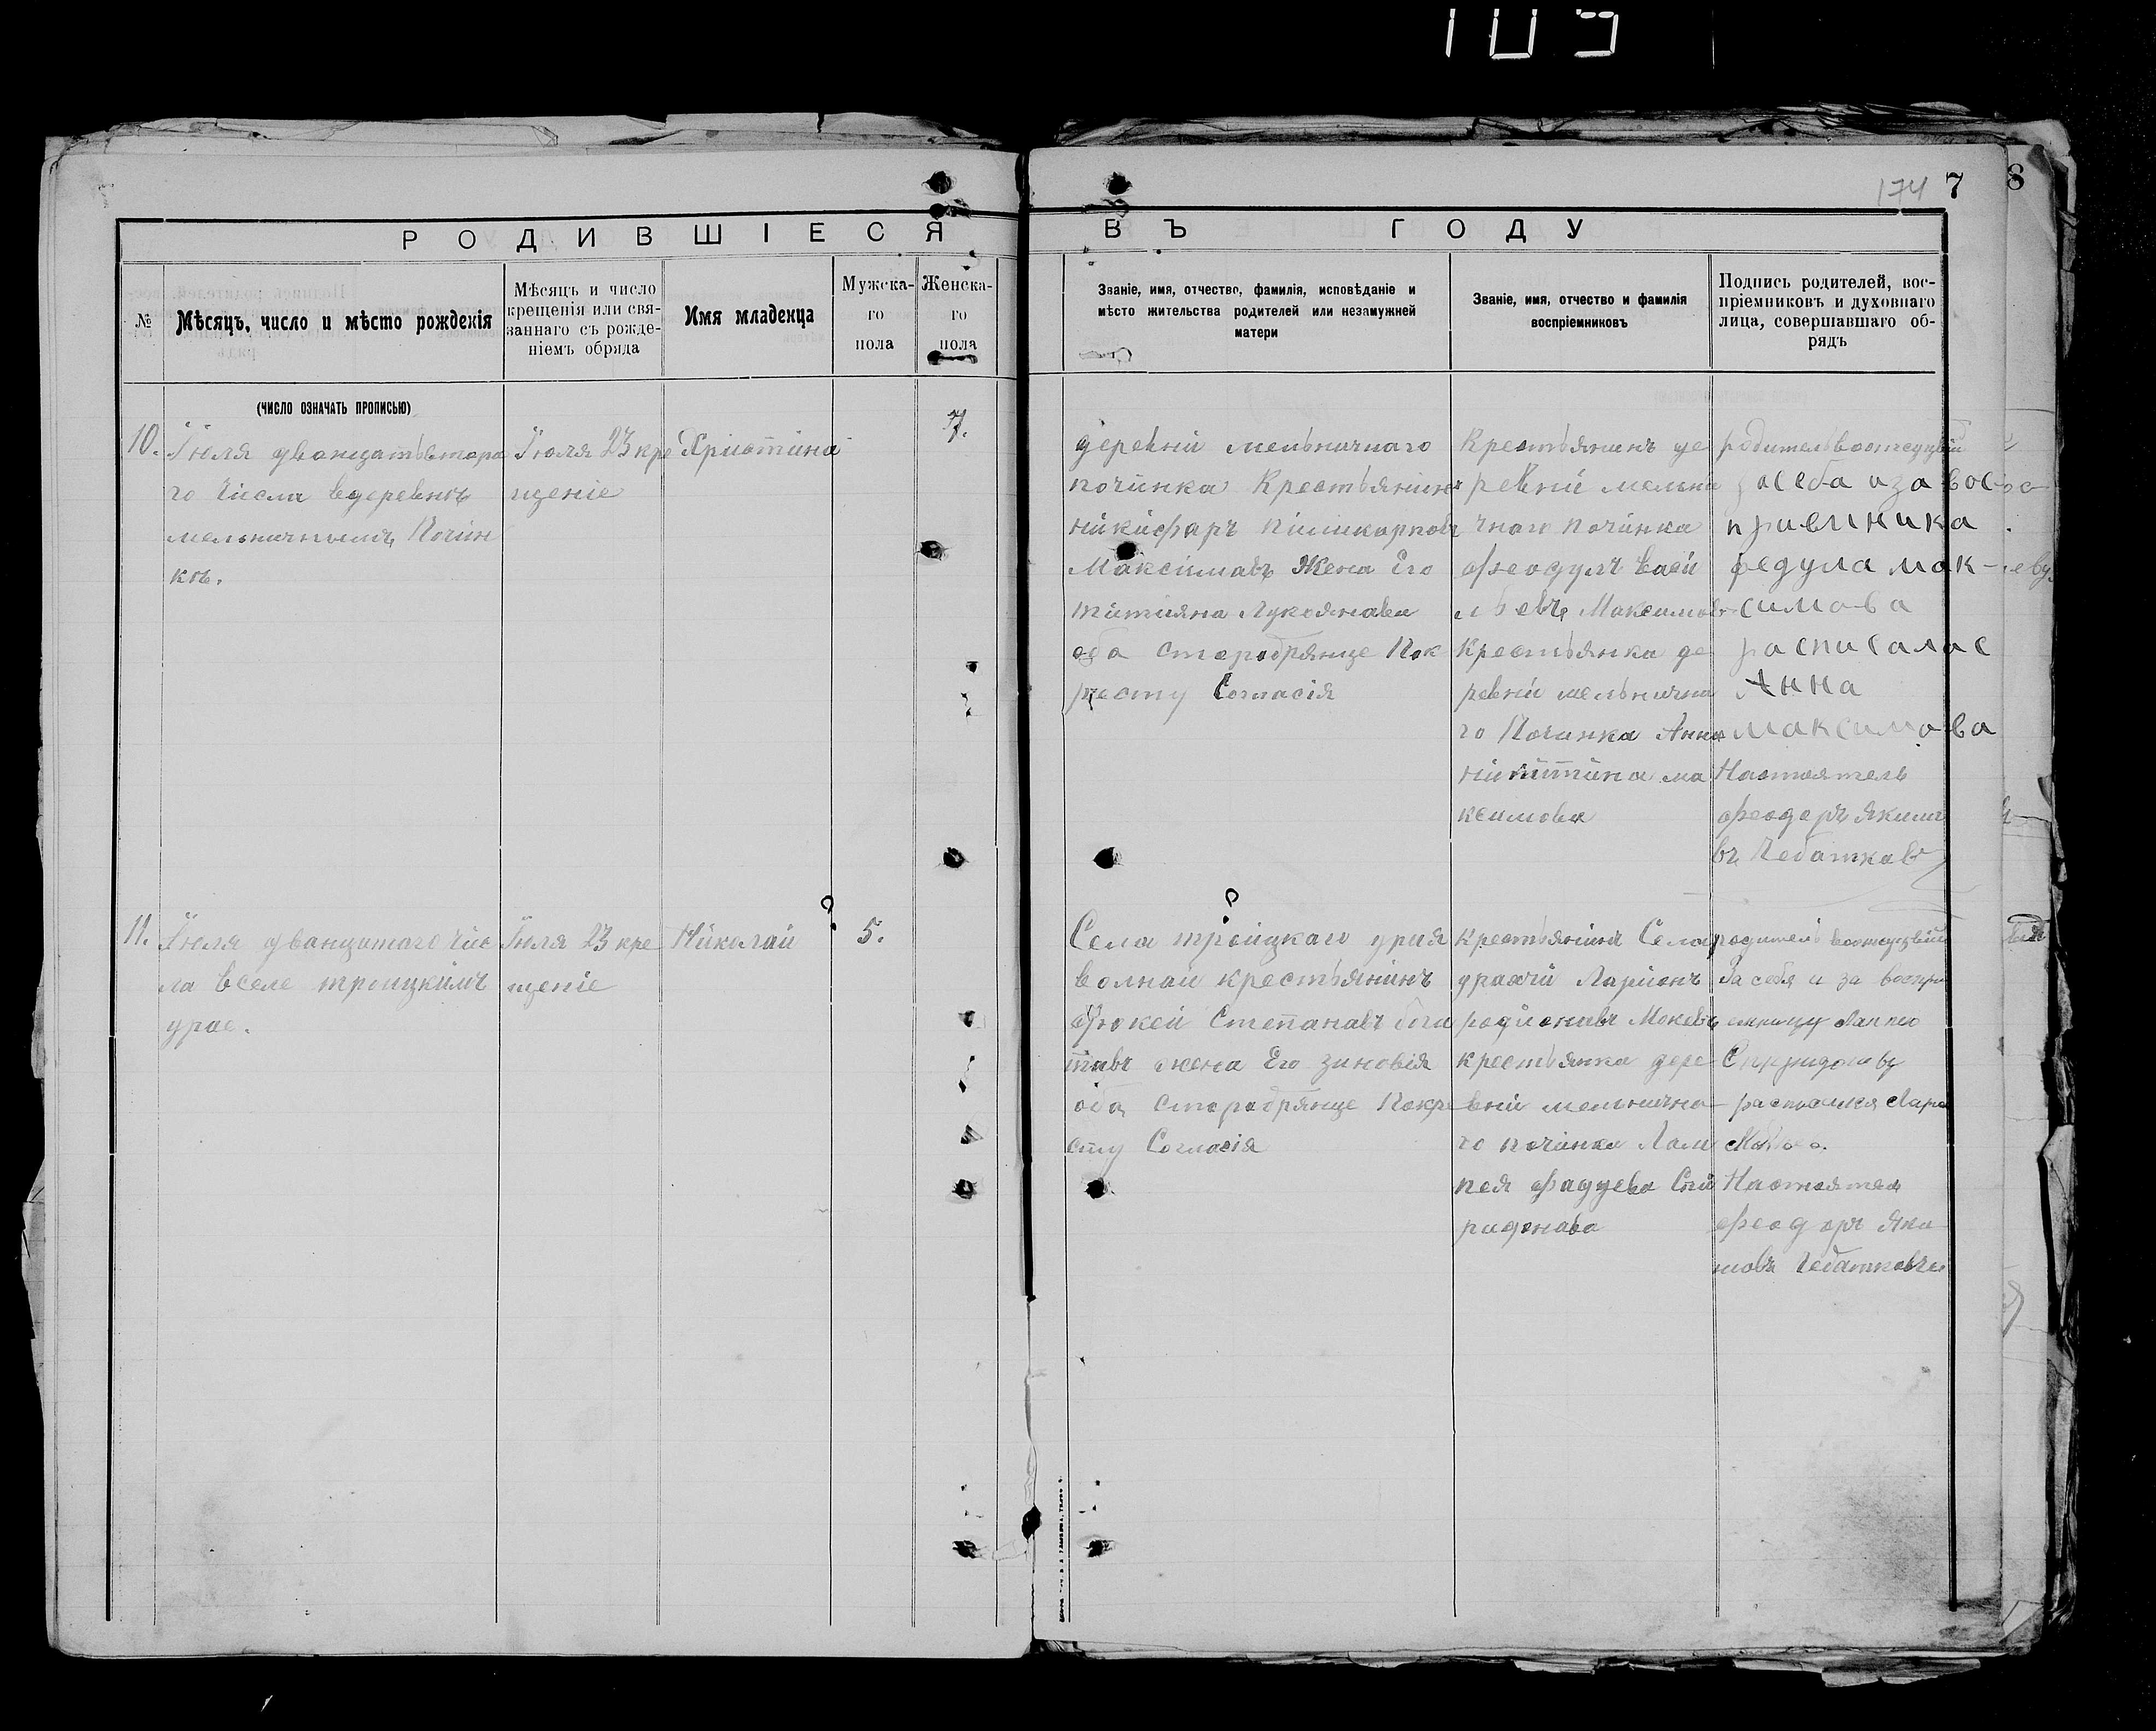 105
174 7 8
РОДИВШІЕСЯ ВЪ ГОДУ
№
Мѣсяцъ, число и мѣсто рожденія
Мѣсяцъ и число
крещенія или свя-
заннаго съ рожде-
ніемъ обряда
Имя младенца
Мужска-
го
пола
Женска-
го
пола
Званіе, имя, отчество, фамилія, исповѣданіе и
мѣсто жительства родителей или незамужней
матери
Званіе, имя, отчество и фамилія
воспріемниковъ
Подпись родителей, вос-
пріемниковъ и духовнаго
лица, совершавшаго об-
рядъ
(ЧИСЛО ОЗНАЧАТЬ ПРОПИСЬЮ)
10.
Іюля дванцатьвтора
го числа вдеревнѣ
мельничнымъ Почин
кѣ.
Іюля 23 кре
щеніе
Христина
7.
деревни мельничнаго
починка Крестьянинъ
никифаръ
Максимавъ Жена Его
татияна Лукоянава
оба старобрянце Пок
ресту Согласія
Крестьянинъ де
ревни мельни
чнаго починка
феодулъ Васи
льевъ Максимовъ
Крестьянка де
ревни мельнична
го Починка Анна
никитина ма
ксимова
родитель
засеба иза вос
приемника
федула мак-
симова
расписалас
Анна
максимова
Настоятель
феодоръ Якимо
въ Чебаткавъ
11.
Іюля дванцатаго чис
ла вселе троицкимъ
урае.
Іюля 23 кре
щеніе
Николай
5.
Села троицкаго урая
волнай крестьянинъ
фокей Степанавъ бога
тавъ жена Его зиновия
оба старобрянце Покре
сту Согласія
крестьянинъ Села
ураи Ларионъ
родионавъ Мокевъ
крестьянка дере
вни мельнична
го починка Лам
пея фадеева Спи
риденава
родитель
За себя и за воспри
емницу Лампею
Спиридонову
расписался
Настоятел
феодоръ Яки
мовъ Чебатковъ